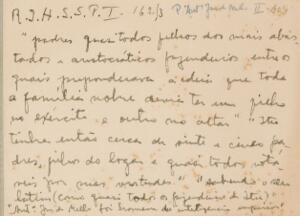 R.I.H.S.S.P. I - 162/3
"padres quasi todos filhos dos mais abas
tados e aristocraticos fazendeiros entre os
quais preponderava a ideia que toda
a familia nobre devia ter um filho
no exercito e outro no altar" "Itú
tinha então cerca de vinte e cinco pa
dres, filhos do logar e quasi todos notá
veis por suas virtudes. "sabendo o seu
latim (como quasi todos os fazendeiros de Itú)
José de Mello foi homem de inteligencia